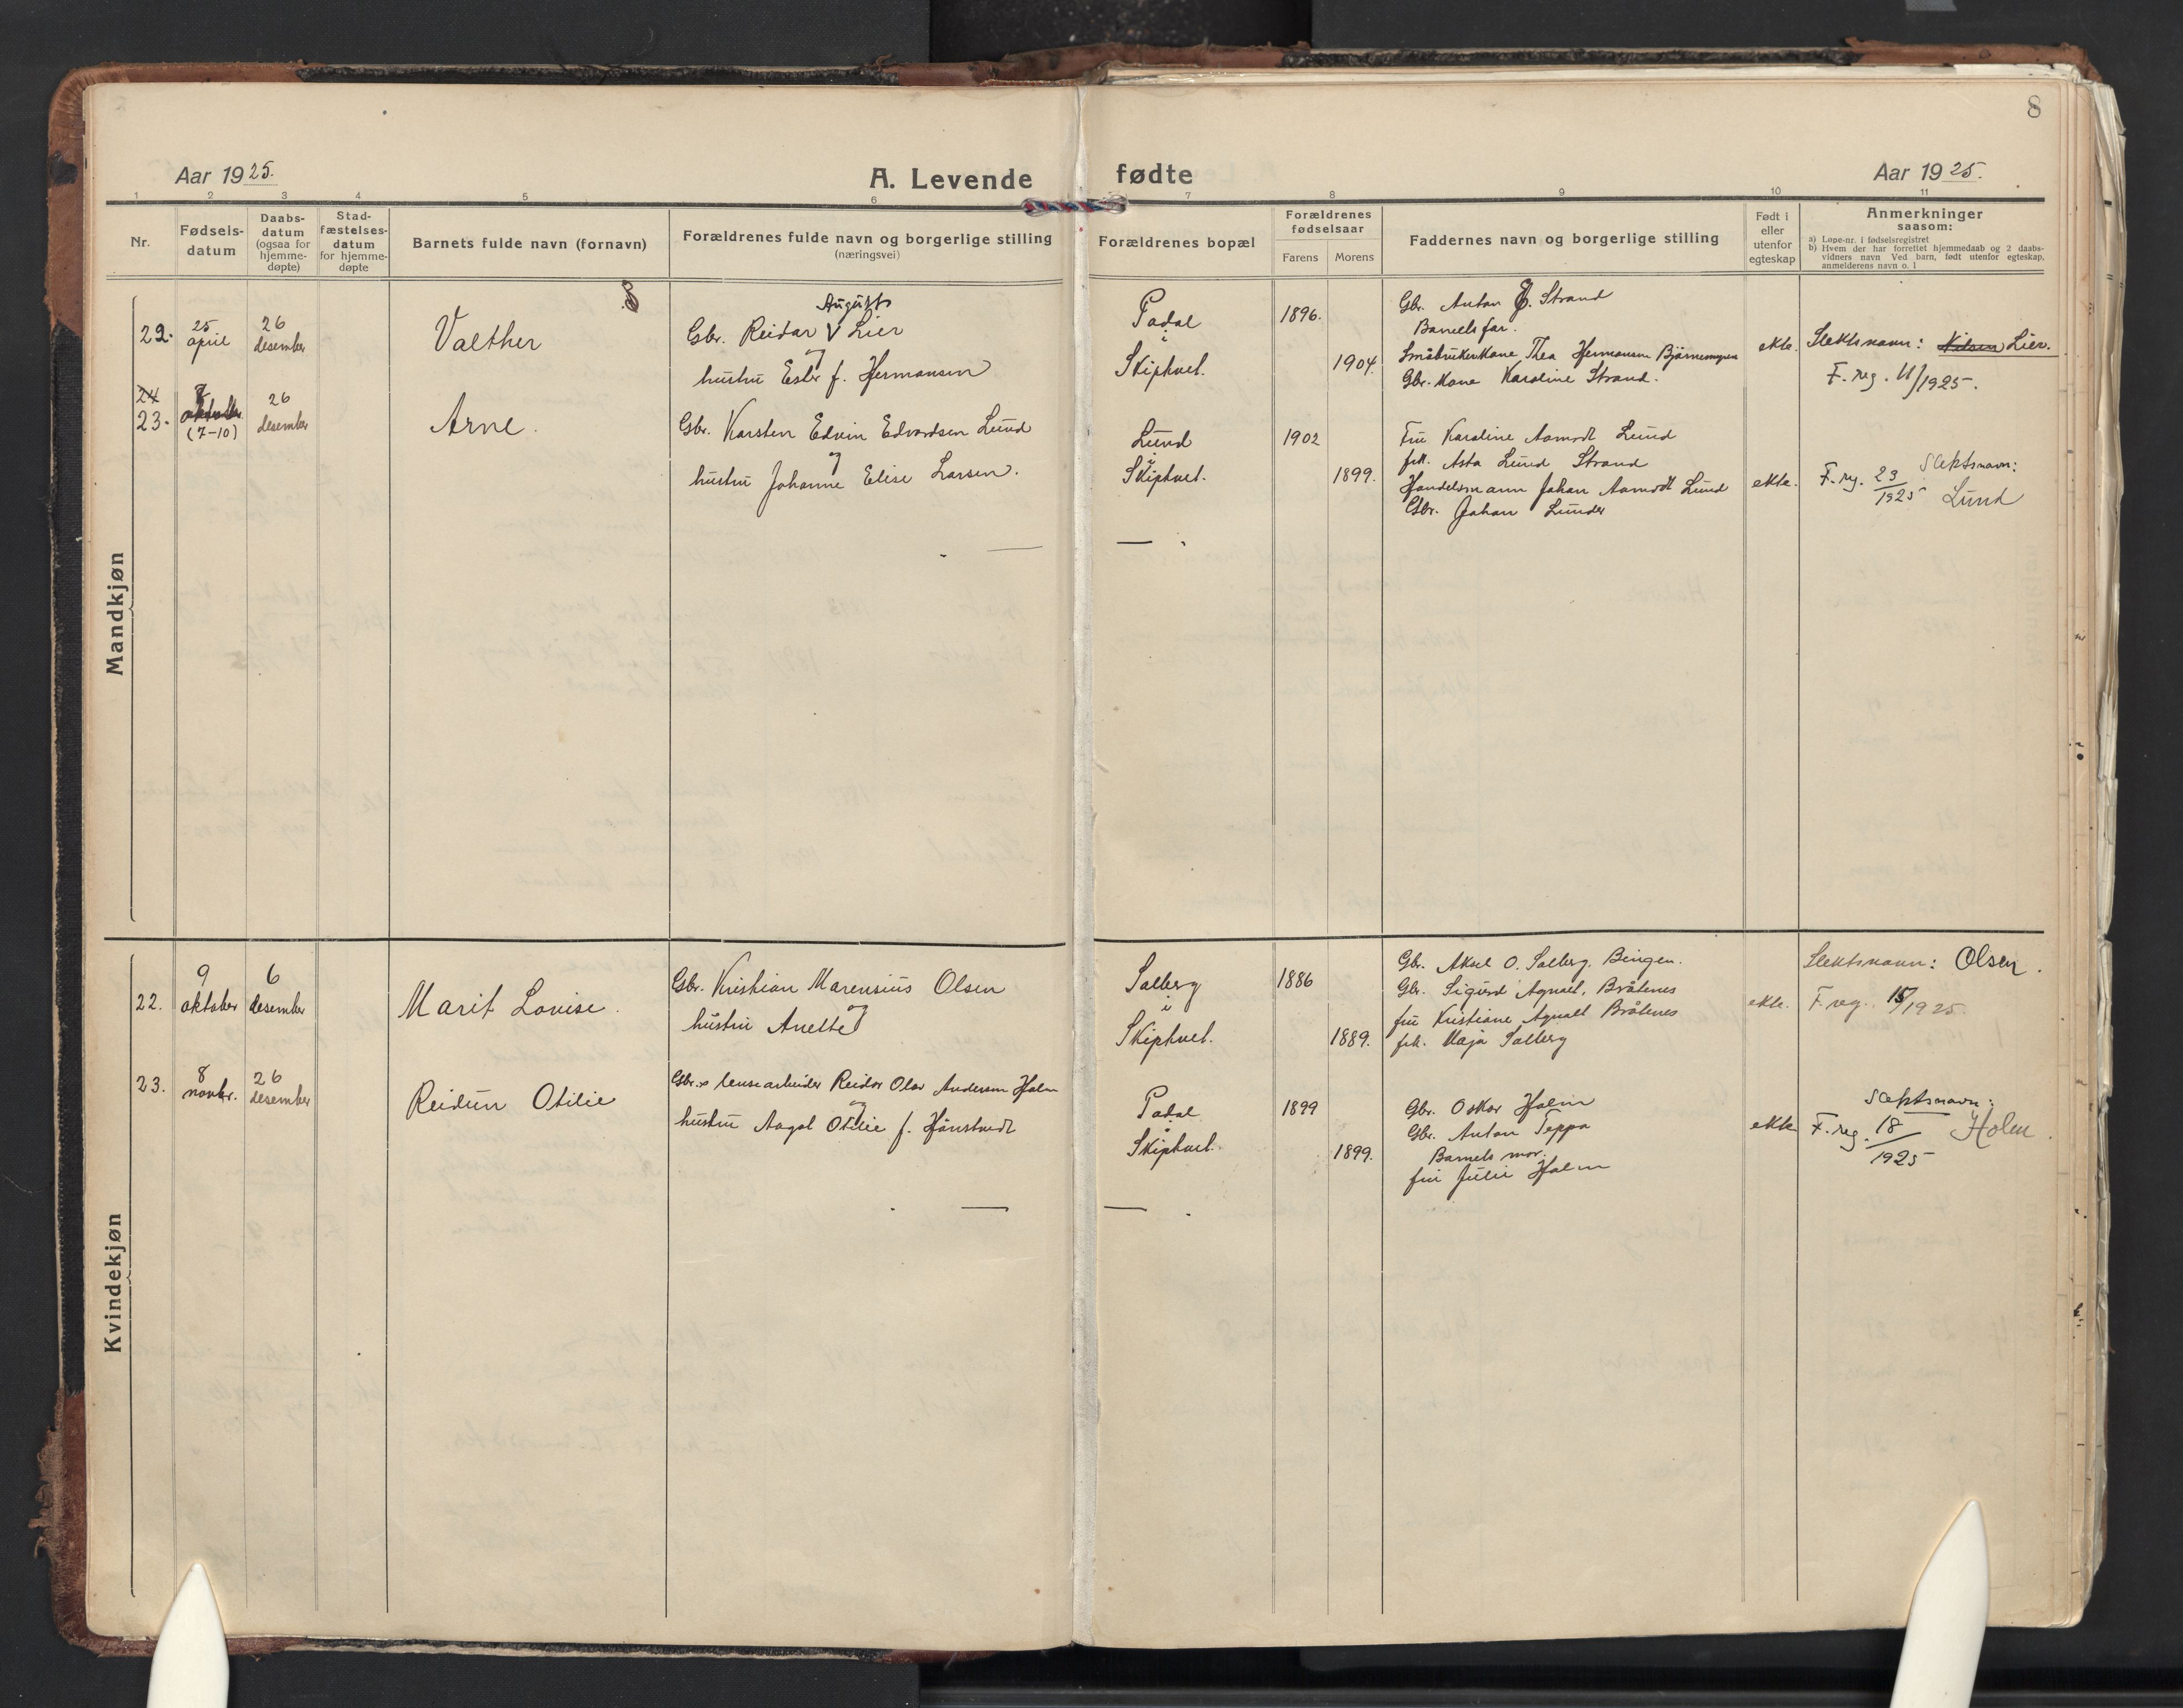 8
Aar 1925.
A. Levende fødte
Aar 1925.
1 2 3 4 5 6 7 8 9 10 11
Nr.
Fødsels-
datum
Daabs-
datum
(ogsaa for
hjemme-
døpte)
Stad-
fæstelses-
datum
for hjemme-
døpte
Barnets fulde navn (fornavn)
Forældrenes fulde navn og borgerlige stilling
(næringsvei)
Forældrenes bopæl
Forældrenes
fødselsaar
Farens Morens
Faddernes navn og borgerlige stilling
Født i
eller
utenfor
egteskap
Anmerkninger
saasom:
a) Løpe-nr. i fødselsregistret
b) Hvem der har forrettet hjemmedaab og 2 daabs-
vidners navn Ved barn, født utenfor egteskap,
anmelderens navn o. l
Mandkjøn
22.
25
april
26
desember
Valther
August
Gbr. Reidar V Lier
og
hustru Ester f. Hermansen
Padal
i
Skiphvel.
1896.
1904.
Gbr. Anton J. Strand
Barnets far.
Småbrukerkone Thea Hermansen Bjørnemyren
Gbr. kone Karoline Strand.
ekte.
Slektsnavn: Nilsen Lier.
F. reg. 11/1925.
24
23.
8
oktober
(7-10)
26
desember
Arne.
Gbr. Karsten Edvin Edvardsen Lund
og
hustru Johanne Elise Larsen.
Lund
i
Skiphvel.
1902
1899.
Fru Karoline Aamodt Lund
frk. Asta Lund Strand
Handelsmann Johan Aamodt Lund
Gbr. Johan Lunder
ekte.
F. reg. 23
1925
Slektsnavn:
Lund
Kvindekjøn
22.
9
oktober
6
desember
Marit Lovise.
Gbr. Kristian Marensius Olsen
og
hustru Anette
Solberg
i
Skiphvel.
1886
1889.
Gbr. Aksel O. Solberg. Bingen.
Gbr. Sigurd Agnalt, Bråtenes
fru Kristiane Agnalt Bråtenes
frk. Maja Solberg
ekte.
Slektsnavn: Olsen.
F. reg. 15/1925.
23.
8
novbr.
26
desember
Reidun Otilie
Gbr. o lensearbeider Reidar Olav Andersen Holm
og
hustru Aagot Otilie f. Hånstvedt
Padal
i
Skiphvel.
1899
1899.
Gbr. Oskar Holm
Gbr. Anton Teppa
Barnets mor.
fru Julie Holm
ekte
Slektsnavn:
F. reg. 18
1925
Holm.